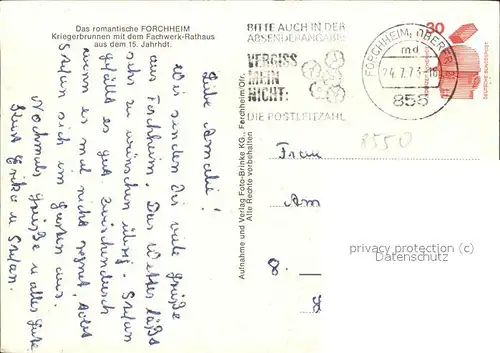 Das romantische FORCHHEIM
Kriegerbrunnen mit dem Fachwerk-Rathaus
aus dem 15. Jahrhdt.
Liebe Amalie!
Wir senden Dir viele Grüße
aus Forchheim. Das Wetter läßt
sehr zu wünschen übrig. Stefan
gefällt es gut. Zwischendurch
wenn es mal nicht regnet, tobt
Stefan sich im Garten aus.
Nochmals Grüße u alles Gute
Erika u Stefan.
Aufnahme und Verlag Foto-Brinke KG., Forchheim/Ofr.
Alle Rechte vorbehalten
BITTE AUCH IN DER
ABSENDERANGABE:
VERGISS
MEIN
NICHT:
DIE POSTLEITZAHL
FORCHHEIM, OBERFR
md
24.7.73
855
30
DEUTSCHE BUNDESPOST
8550
Frau
Am
8.
privacy protection (c)
Datenschutz